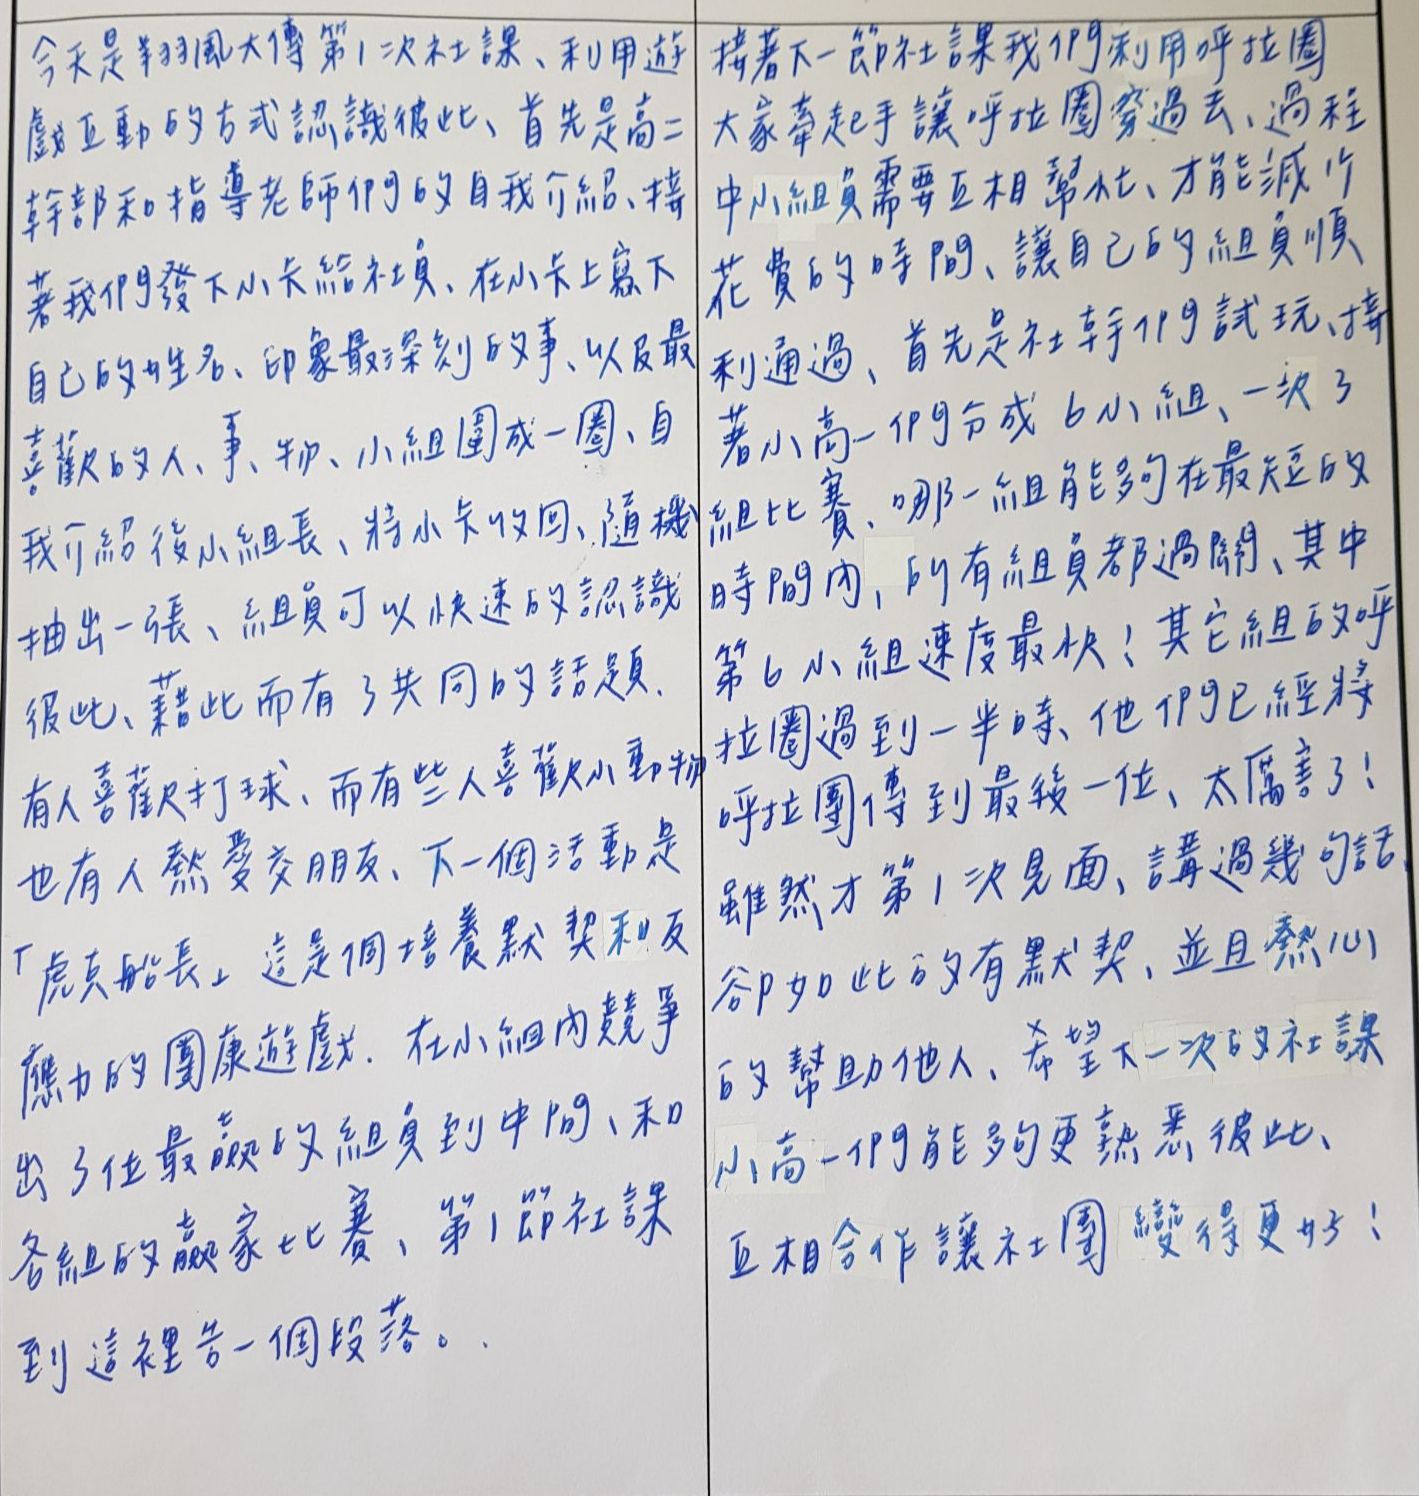 今天是翔風大傳第1次社課、利用遊
戲互動的方式認識彼此、首先是高二
幹部和指導老師們的自我介紹、接
著我們發下小卡給社員、在小卡上寫下
自己的姓名、印象最深刻的事、以及最
喜歡的人、事、物、小組圍成一圈、自
我介紹後小組長、將小卡收回、隨機
抽出一張、組員可以快速的認識
彼此、藉此而有了共同的話題.
有人喜歡打球、而有些人喜歡小動物
也有人熱愛交朋友、下一個活動是
「虎克船長」這是個培養默契和反
應力的團康遊戲. 在小組內競爭
出3位最贏的組員到中間、和
各組的贏家比賽、第1節社課
到這裡告一個段落。.
接著下一節社課我們利用呼拉圈
大家牽起手讓呼拉圈穿過去、過程
中小組員需要互相幫忙、才能減少
花費的時間、讓自己的組員順
利通過、首先是社幹們試玩、接
著小高一們分成6小組、一次3
組比賽、哪一組能夠在最短的
時間內,所有組員都過關、其中
第6小組速度最快!其它組的呼
拉圈過到一半時、他們已經將
呼拉圈傳到最後一位、太厲害了!
雖然才第1次見面、講過幾句話、
卻如此的有默契、並且熱心
的幫助他人、希望下一次的社課
小高一們能夠更熟悉彼此、
互相合作讓社團變得更好!